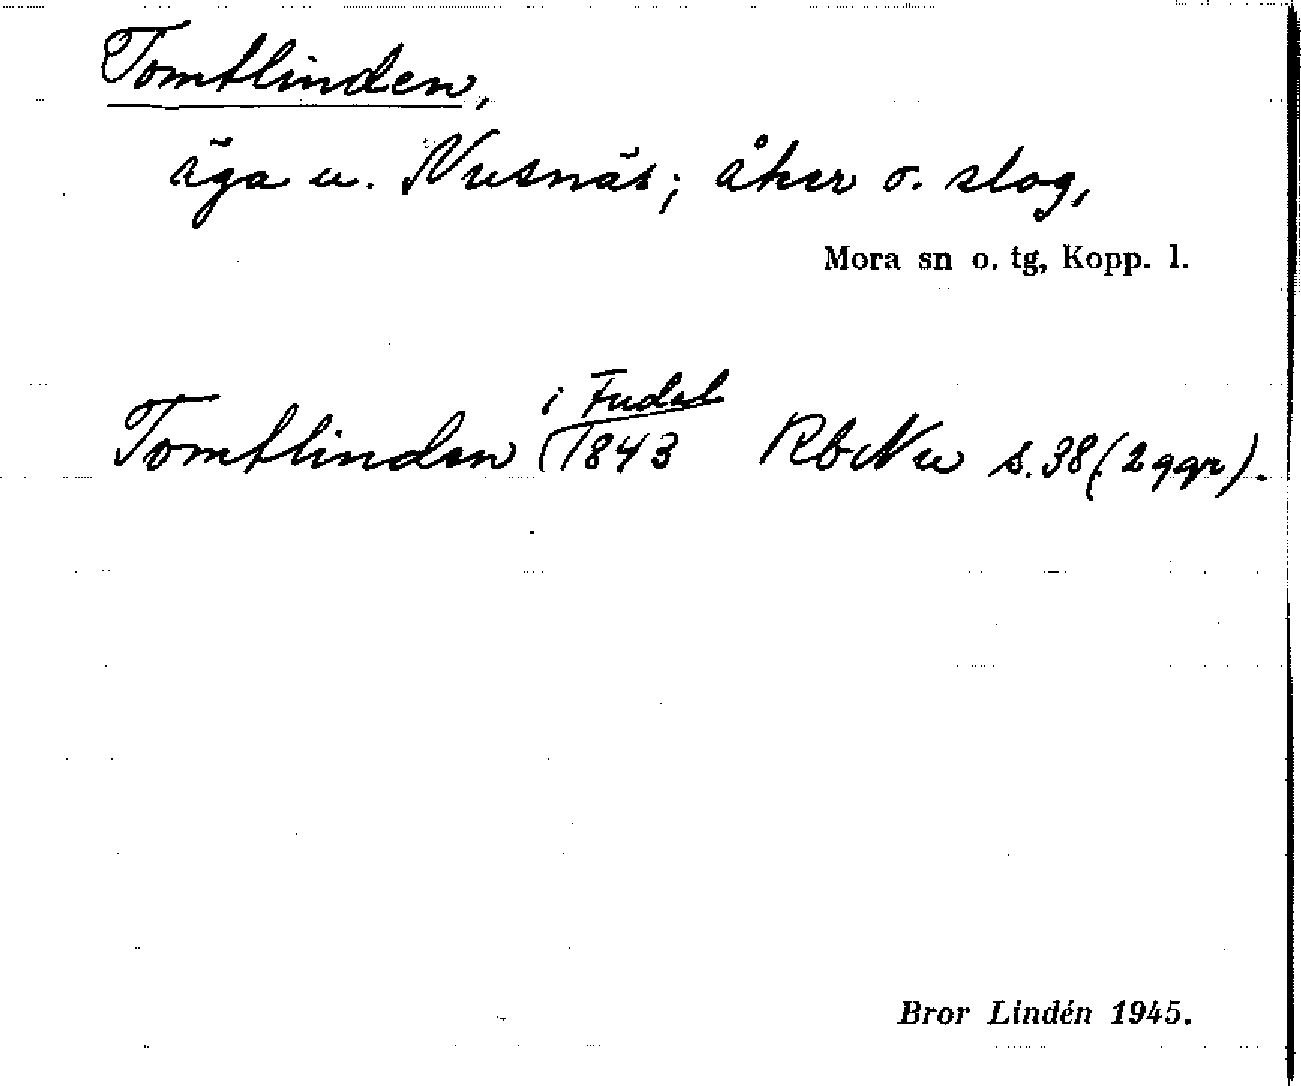 Tomtlinden,
äga u. Nusnäs; åker o. slog,
Mora sn o. tg, Kopp. l.
i Fudal
Tomtlinden 1843 RbNu s. 38 (2 ggr).
Bror Lindén 1945.